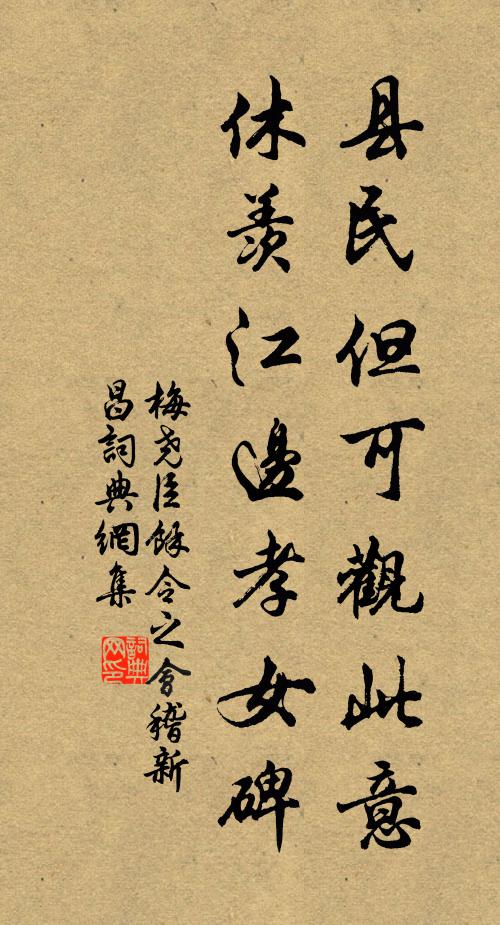 县民但可觀此意
休羨江邊孝女碑
梅尧臣餘令之會稽新
昌詞典網集
詞典网印